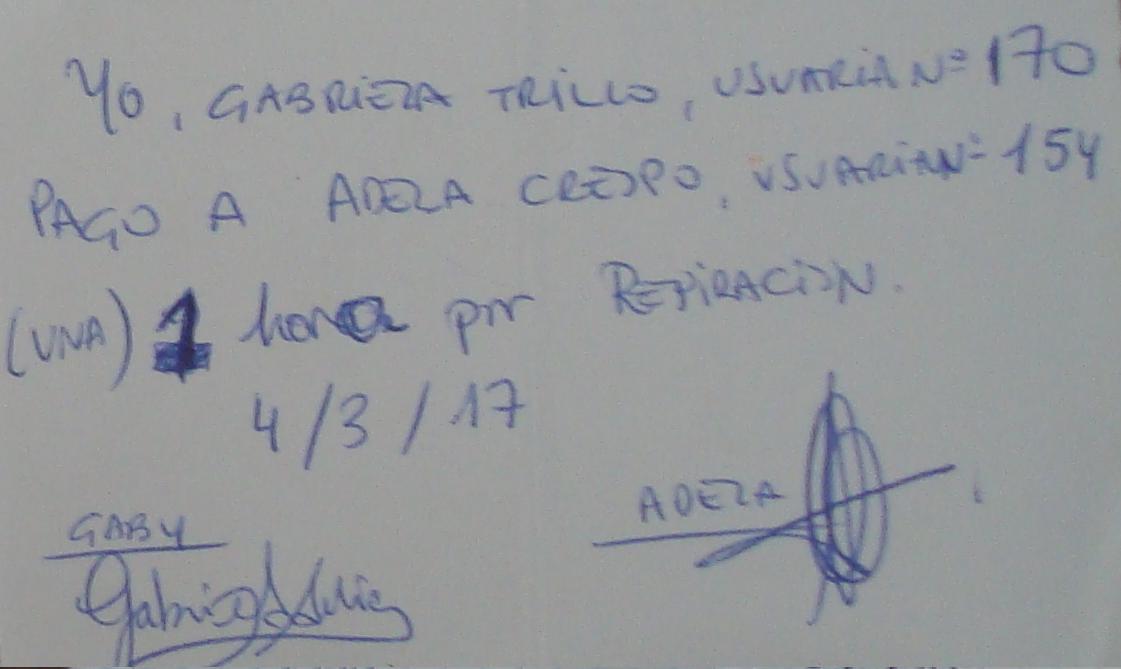 Yo, GABRIELA TRILLO, USUARIA Nº 170
PAGO A ADELA CRESPO, USUARIA Nº 154
(UNA) 1 hora por RESPIRACIÓN.
4/3/17
GABY
ADELA